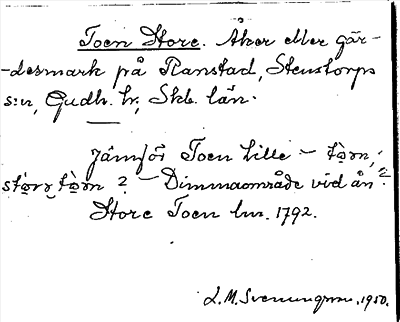 Toen Store. Åker eller gär-
-desmark på Ranstad, Stenstorps
s:n, Gudh. hr, Skb. län.
Jämför Toen Lille – tòn,
störo, tòn? – Dimmaområde vid ån?
Store Toen lm. 1792.
L. M. Svenungsson. 1950.